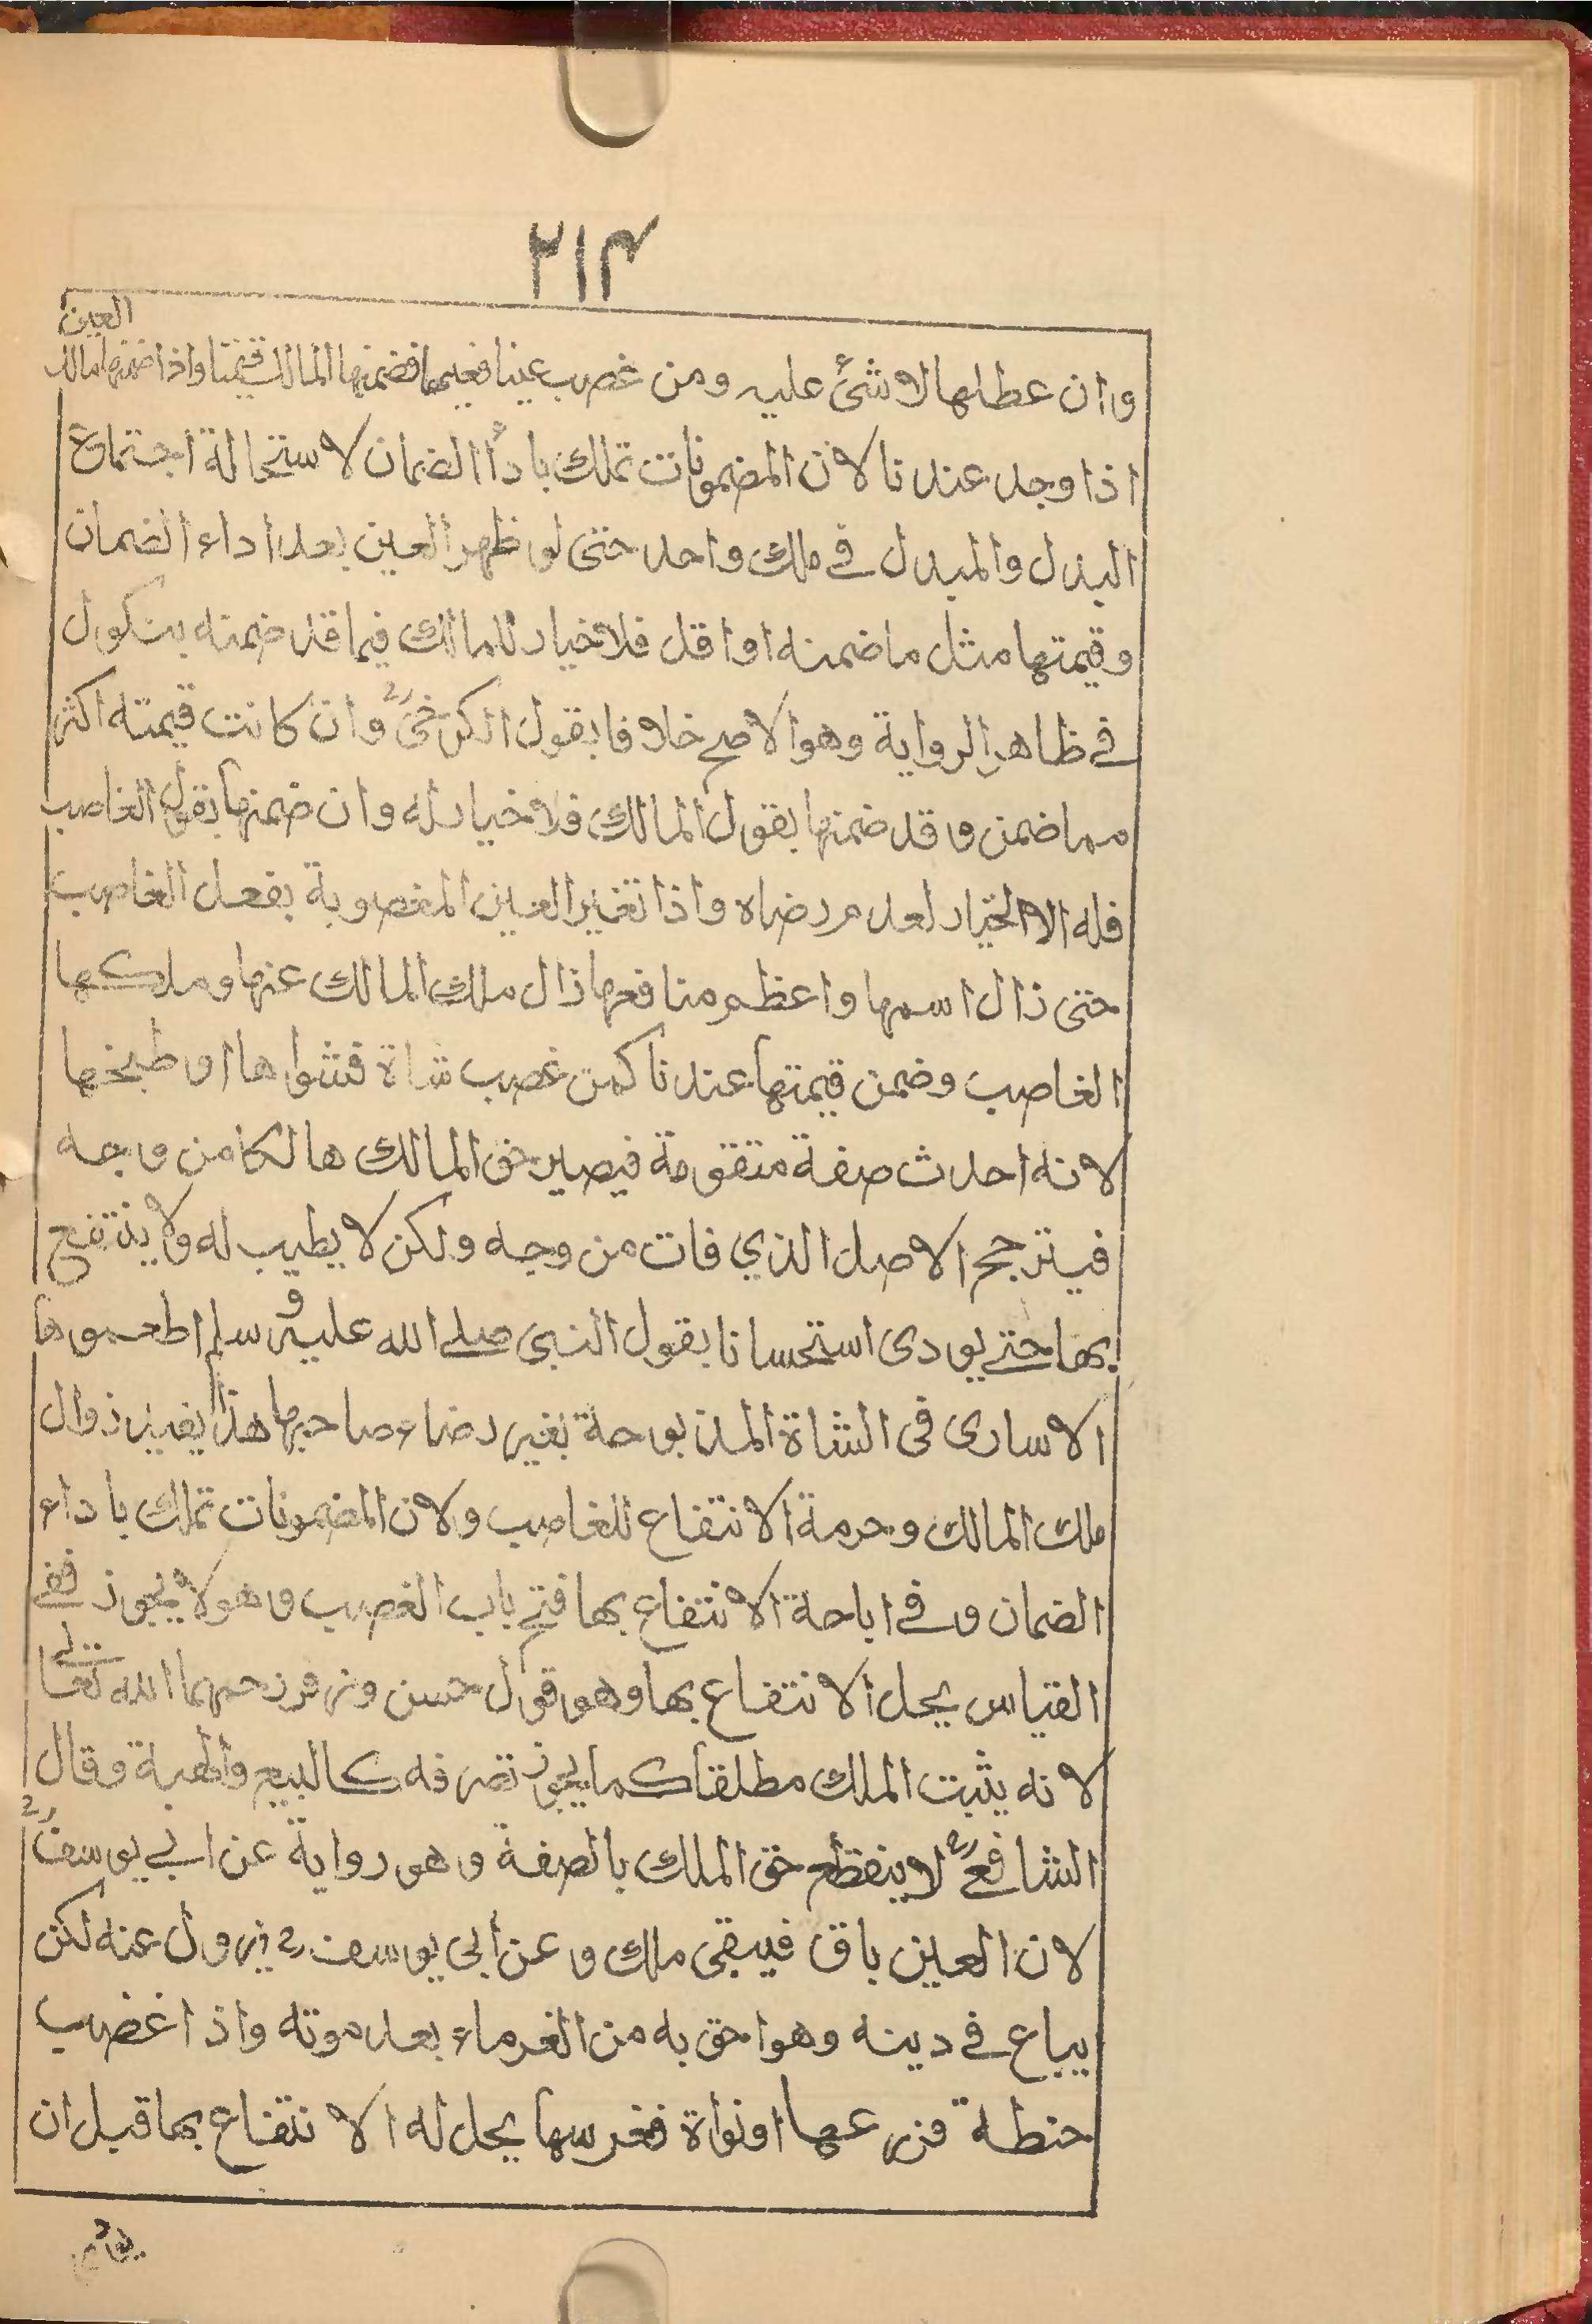 ٢١٣
العين
وان عطلها لا شئ عليه ومن غصب عينا فغيبها فضمنها المالك قيمتها واذا ضمنها مالك
اذا وجد عندنا لان المضمونات تملك بادأ الضمان لاستحالة اجتماع
البدل والمبدل في ملك واحد حتى لو ظهر العين بعد اداء الضمان
وقيمتها مثل ما ضمنه او اقل فلا خيار للمالك فيما قد ضمنه بنكول
في ظاهر الرواية وهو الاصح خلافا بقول الكرخي رح وان كانت قيمته اكثر
مما ضمن وقد ضمنها بقول المالك فلا خيار له وان ضمنها بقول الغاصب
فله الا الخيار لعدم رضاه واذا تغير العين المغصوبة بفعل الغاصب
حتى زال اسمها واعظم منافعها زال ملك المالك عنها وملكها
الغاصب وضمن قيمتها عندنا كمن غصب شاة فشواها او طبخها
لانه احدث صفة متقومة فيصير حق المالك هالكا من وجه
فيترجح الاصل الذي فات من وجه ولكن لا يطيب له ولا ينتفع
بها حتے يودى استحسانا بقول النبى صلے الله عليه وسلم اطعموها
الاسارى فى الشاة المذبوحة بغير رضاء صاحبها هذا يفيد زوال
ملك المالك وحرمة الانتفاع للغاصب ولان المضمونات تملك باداء
الضمان وفے اباحة الانتفاع بها فتح باب الغصب وهو لا يجوز ففے
القياس يحل الانتفاع بها وهو قول حسن وزفر رحمهما الله تعالے
لانه يثبت الملك مطلقا كما يجوز تصرفه كالبيع والهبة وقال
الشافعے رح لا ينقطع حق الملك بالصفة وهو رواية عن ابے يوسف رح
لان العين باق فيبقى ملك وعن أبى يوسف رح يزول عنه لكن
يباع فے دينه وهو احق به من الغرماء بعد موته واذا غضب
حنطة فزرعها او نواة فغرسها يحل له الانتفاع بها قبل ان